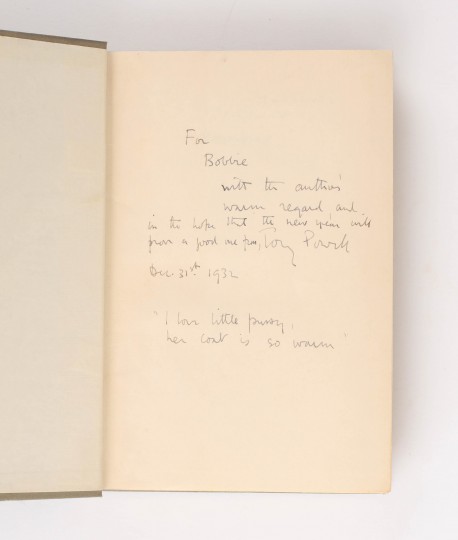 For
Bobbie
with the author's
warm regard and
in the hopes that the new year will
prove a good one from, Tony Powell
Dec. 31st 1932
"I love little pussy,
her coat is so warm"